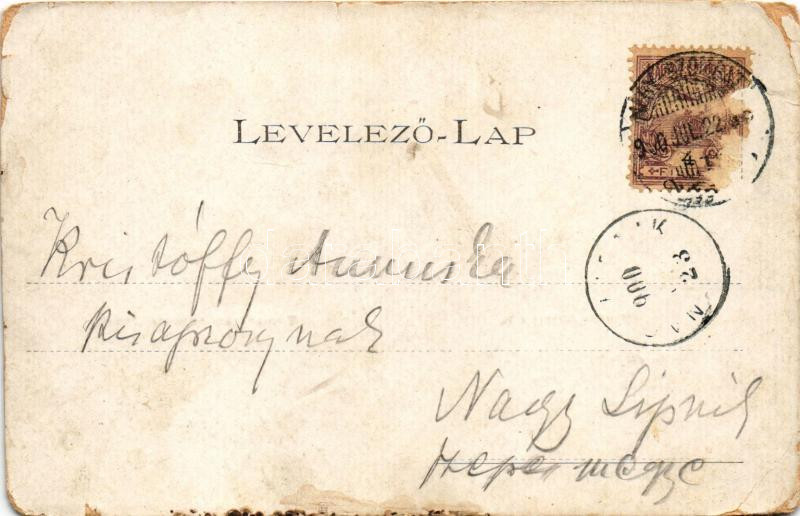 LEVELEZŐ-LAP
NAGYSZOMBAT
900 JUL. 22
4
900
23
Kristóffy Annuska
kisasszonynak
Nagy Lipnik
Szepes megye